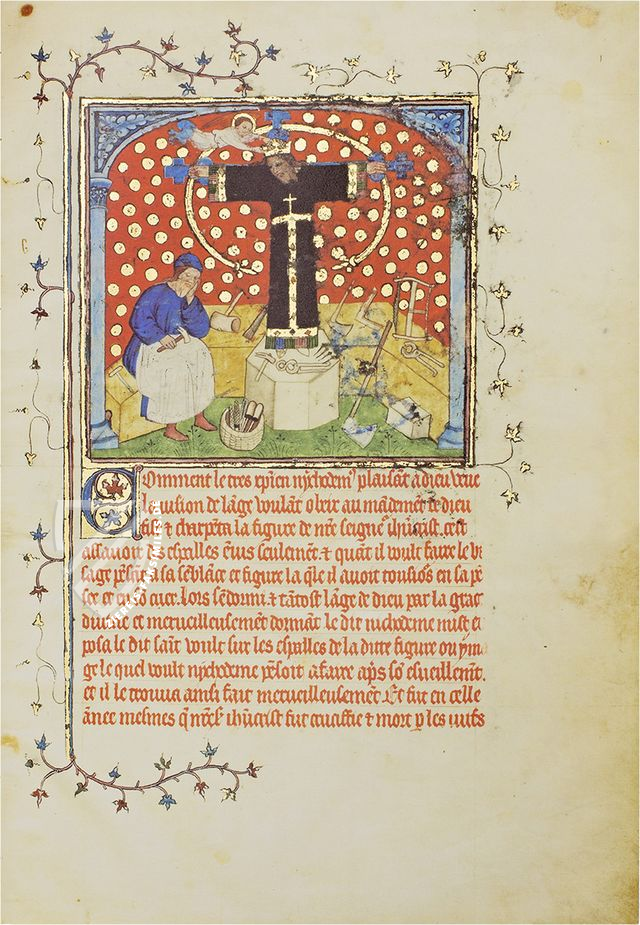 Comment le tres xpien nychodem' plaisat a dieu veue
la vision de lange voulat obeir au mademet de dieu
fist & charpeta la figure de nre seigne' ihucrist cest
assavoir des espalles enius seulemet. & quat il voult faire le vi
sage pesat a sa seblace et figure la qle il avoit tousios en sa pe
see et en so cuer. lors sedormi. & tatost lange de dieu par la grace
divine et merveilleusemet dormat le dit nichodeme mist et
posa le dit sait voult sur les espalles de la ditte figure ou yma
ge le quel voult nychodeme pesoit a faire aps so esueillemet.
et il le trouva ainsi fait merveilleusemet. Et fut en celle
anee mesmes q nre s' ihucrist fut crucifie & mort p les iuifs